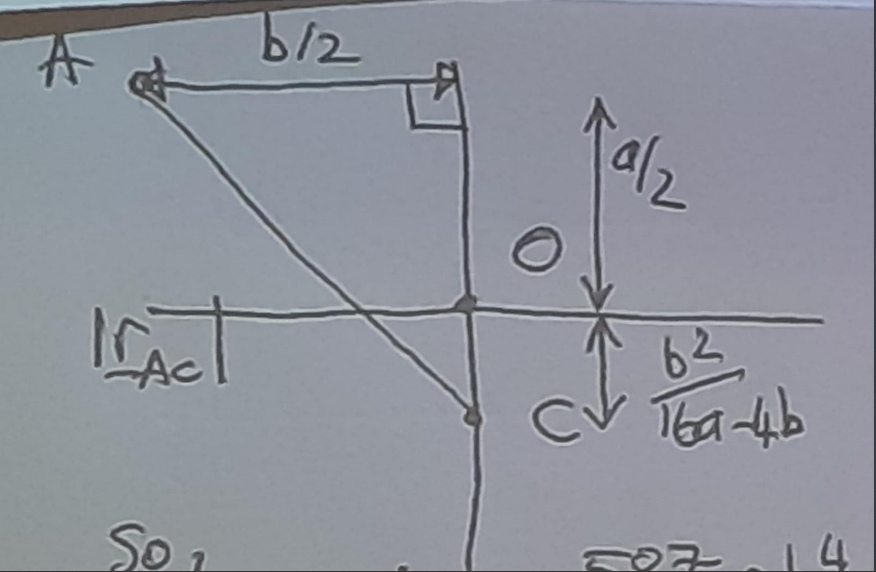 A
b/2
a/2
O
|r_AC|
C
b²/16a-4b
So,